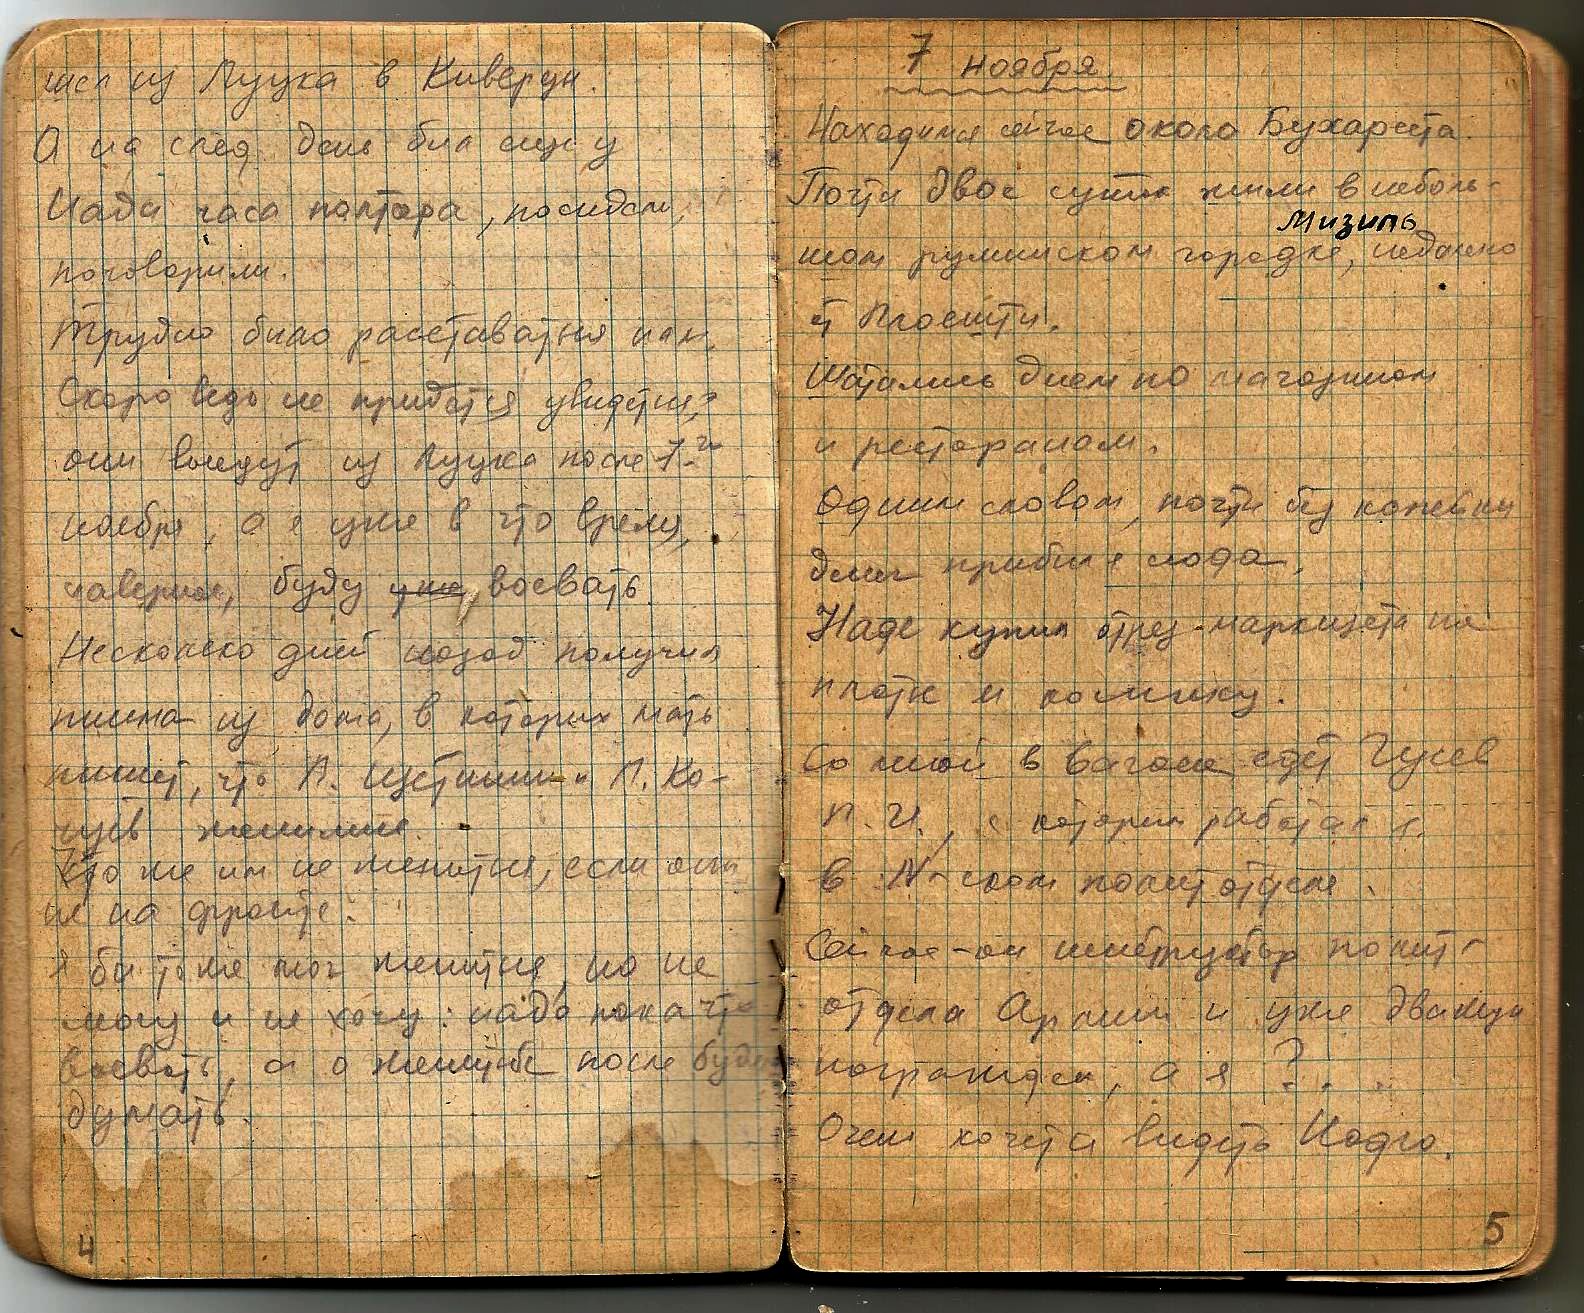 из Луцка в Киверци.
А на след. день был еще у
Нади часа полтора, посидели,
поговорили.
Трудно было расставаться нам.
Скоро ведь не придется увидеться:
они выедут из Луцка после 7-го
ноября, а я уже в это время,
наверное, буду уже, воевать.
Несколько дней назад получил
письма из дома, в которых мать
пишет, что А. Устинин и Л. Ко-
женились.
Что же им не жениться, если они
не на фронте.
Я бы тоже мог жениться, но не
могу и не хочу: надо пока что
воевать, а о женитьбе после буду
думать.
4
7 ноября.
Находимся сейчас около Бухареста.
Почти двое суток жили в неболь-
Мизиль
шом румынском городке, недалеко
от Плоешти.
Шатались днем по магазинам
и ресторанам.
Одним словом, почти без копейки
денег прибыл я сюда.
Наде купил отрез маркизета на
платье и косынку.
Со мной в вагоне едет Гусев
П.И., с которым работал я
в N-ском политотделе.
Сейчас - он инструктор полит-
отдела Армии и уже дважды
награжден, а я ?...
Очень хочется видеть Надю.
5